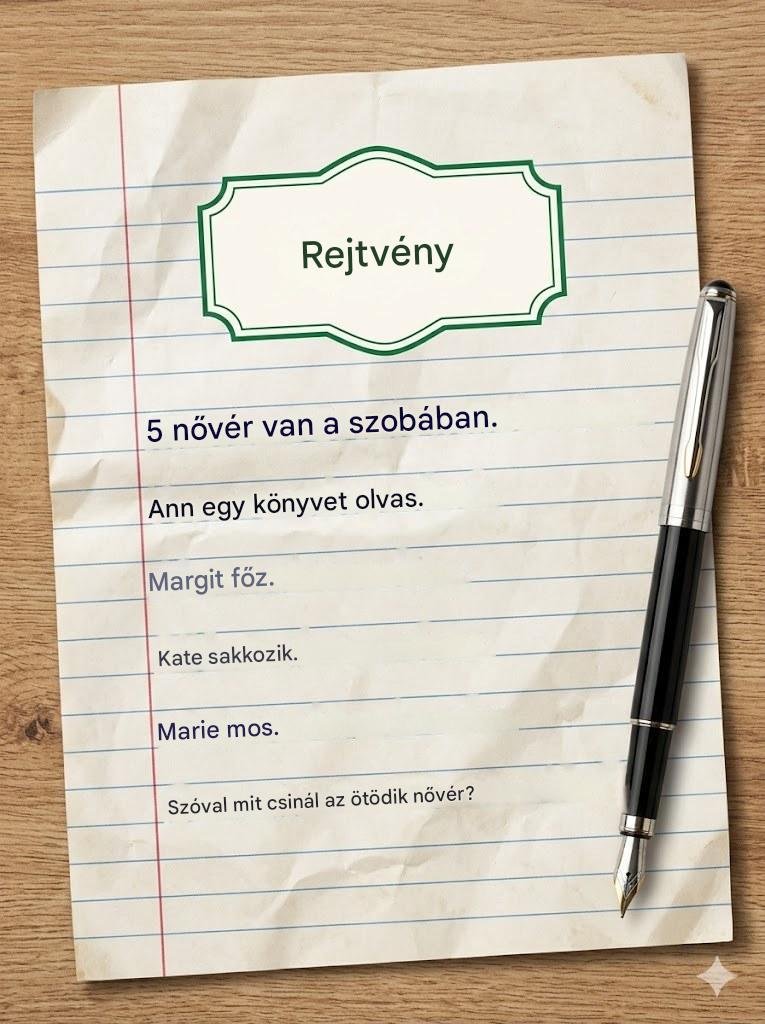 Rejtvény
5 nővér van a szobában.
Ann egy könyvet olvas.
Margit főz.
Kate sakkozik.
Marie mos.
Szóval mit csinál az ötödik nővér?